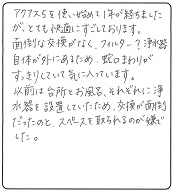 アクアス5を使い始めて1年が経ちました
が、とても快適にすごしております。
面倒な交換がなく、フィルター?浄水器
自体が外にあるため、蛇口まわりが
すっきりしていて気に入っています。
以前は台所とお風呂、それぞれに浄
水器を設置していたため、交換が面倒
だったのと、スペースを取られるのが嫌で
した。